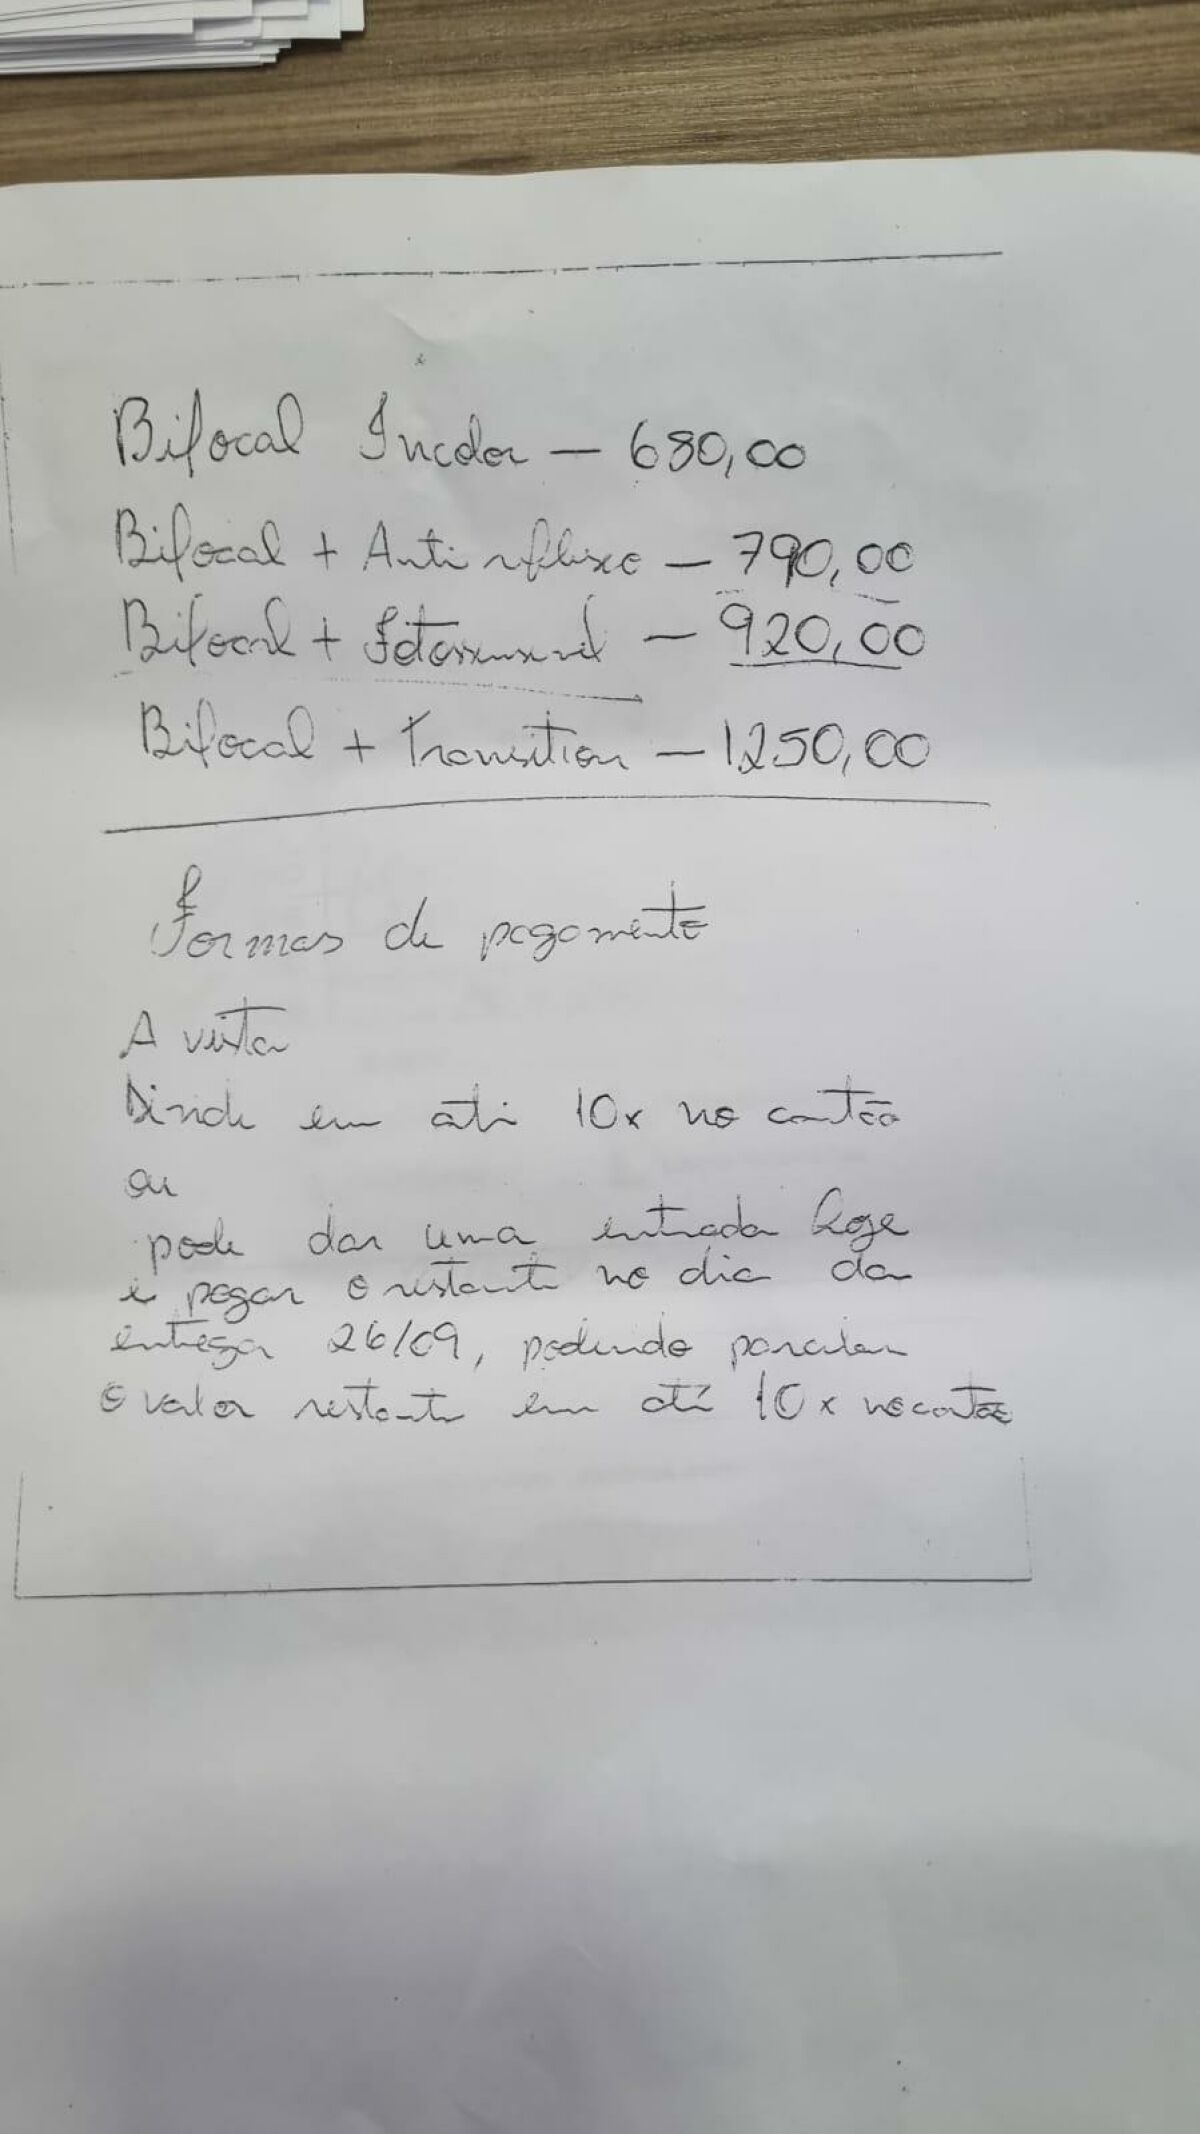 Bifocal Incolor — 680,00
Bifocal + Anti reflexo — 790,00
Bifocal + Fotossensivel — 920,00
Bifocal + Transition — 1250,00
Formas de pagamento
A vista
Divide em até 10x no cartão
ou
pode dar uma entrada hoje
e pagar o restante no dia da
entrega 26/09, podendo parcelar
o valor restante em até 10x no cartão